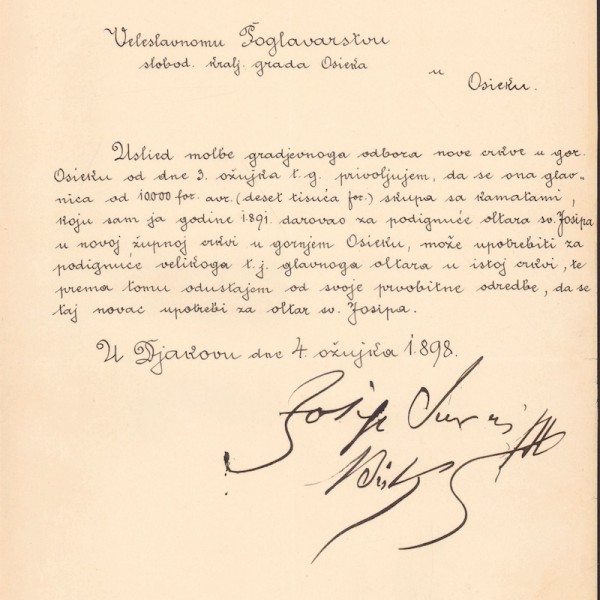 Veleslavnomu Poglavarstvu
slobod. kralj. grada Osieka
u
Osieku.
Uslied molbe gradjevnoga odbora nove crkve u gor.
Osieku od dne 3. ožujka t.g. privoljujem, da se ona glav-
nica od 10000 for. avr. (deset tisuća for.) skupa sa kamatami,
koju sam ja godine 1891. darovao za podignuće oltara sv. Josipa
u novoj župnoj crkvi u gornjem Osieku, može upotrebiti za
podignuće velikoga t.j. glavnoga oltara u istoj crkvi, te
prema tomu odustajem od svoje prvobitne odredbe, da se
taj novac upotrebi za oltar sv. Josipa.
U Djakovu dne 4. ožujka 1898.
Josip Juraj